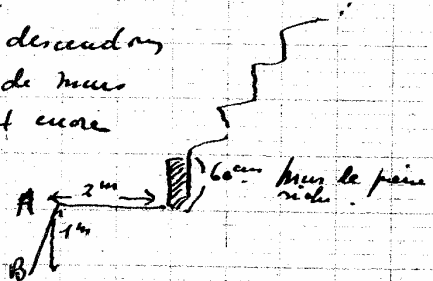 descendons
de murs
t encore
60 cm Mur de pierre
sèche.
A
2 m
1 m
B